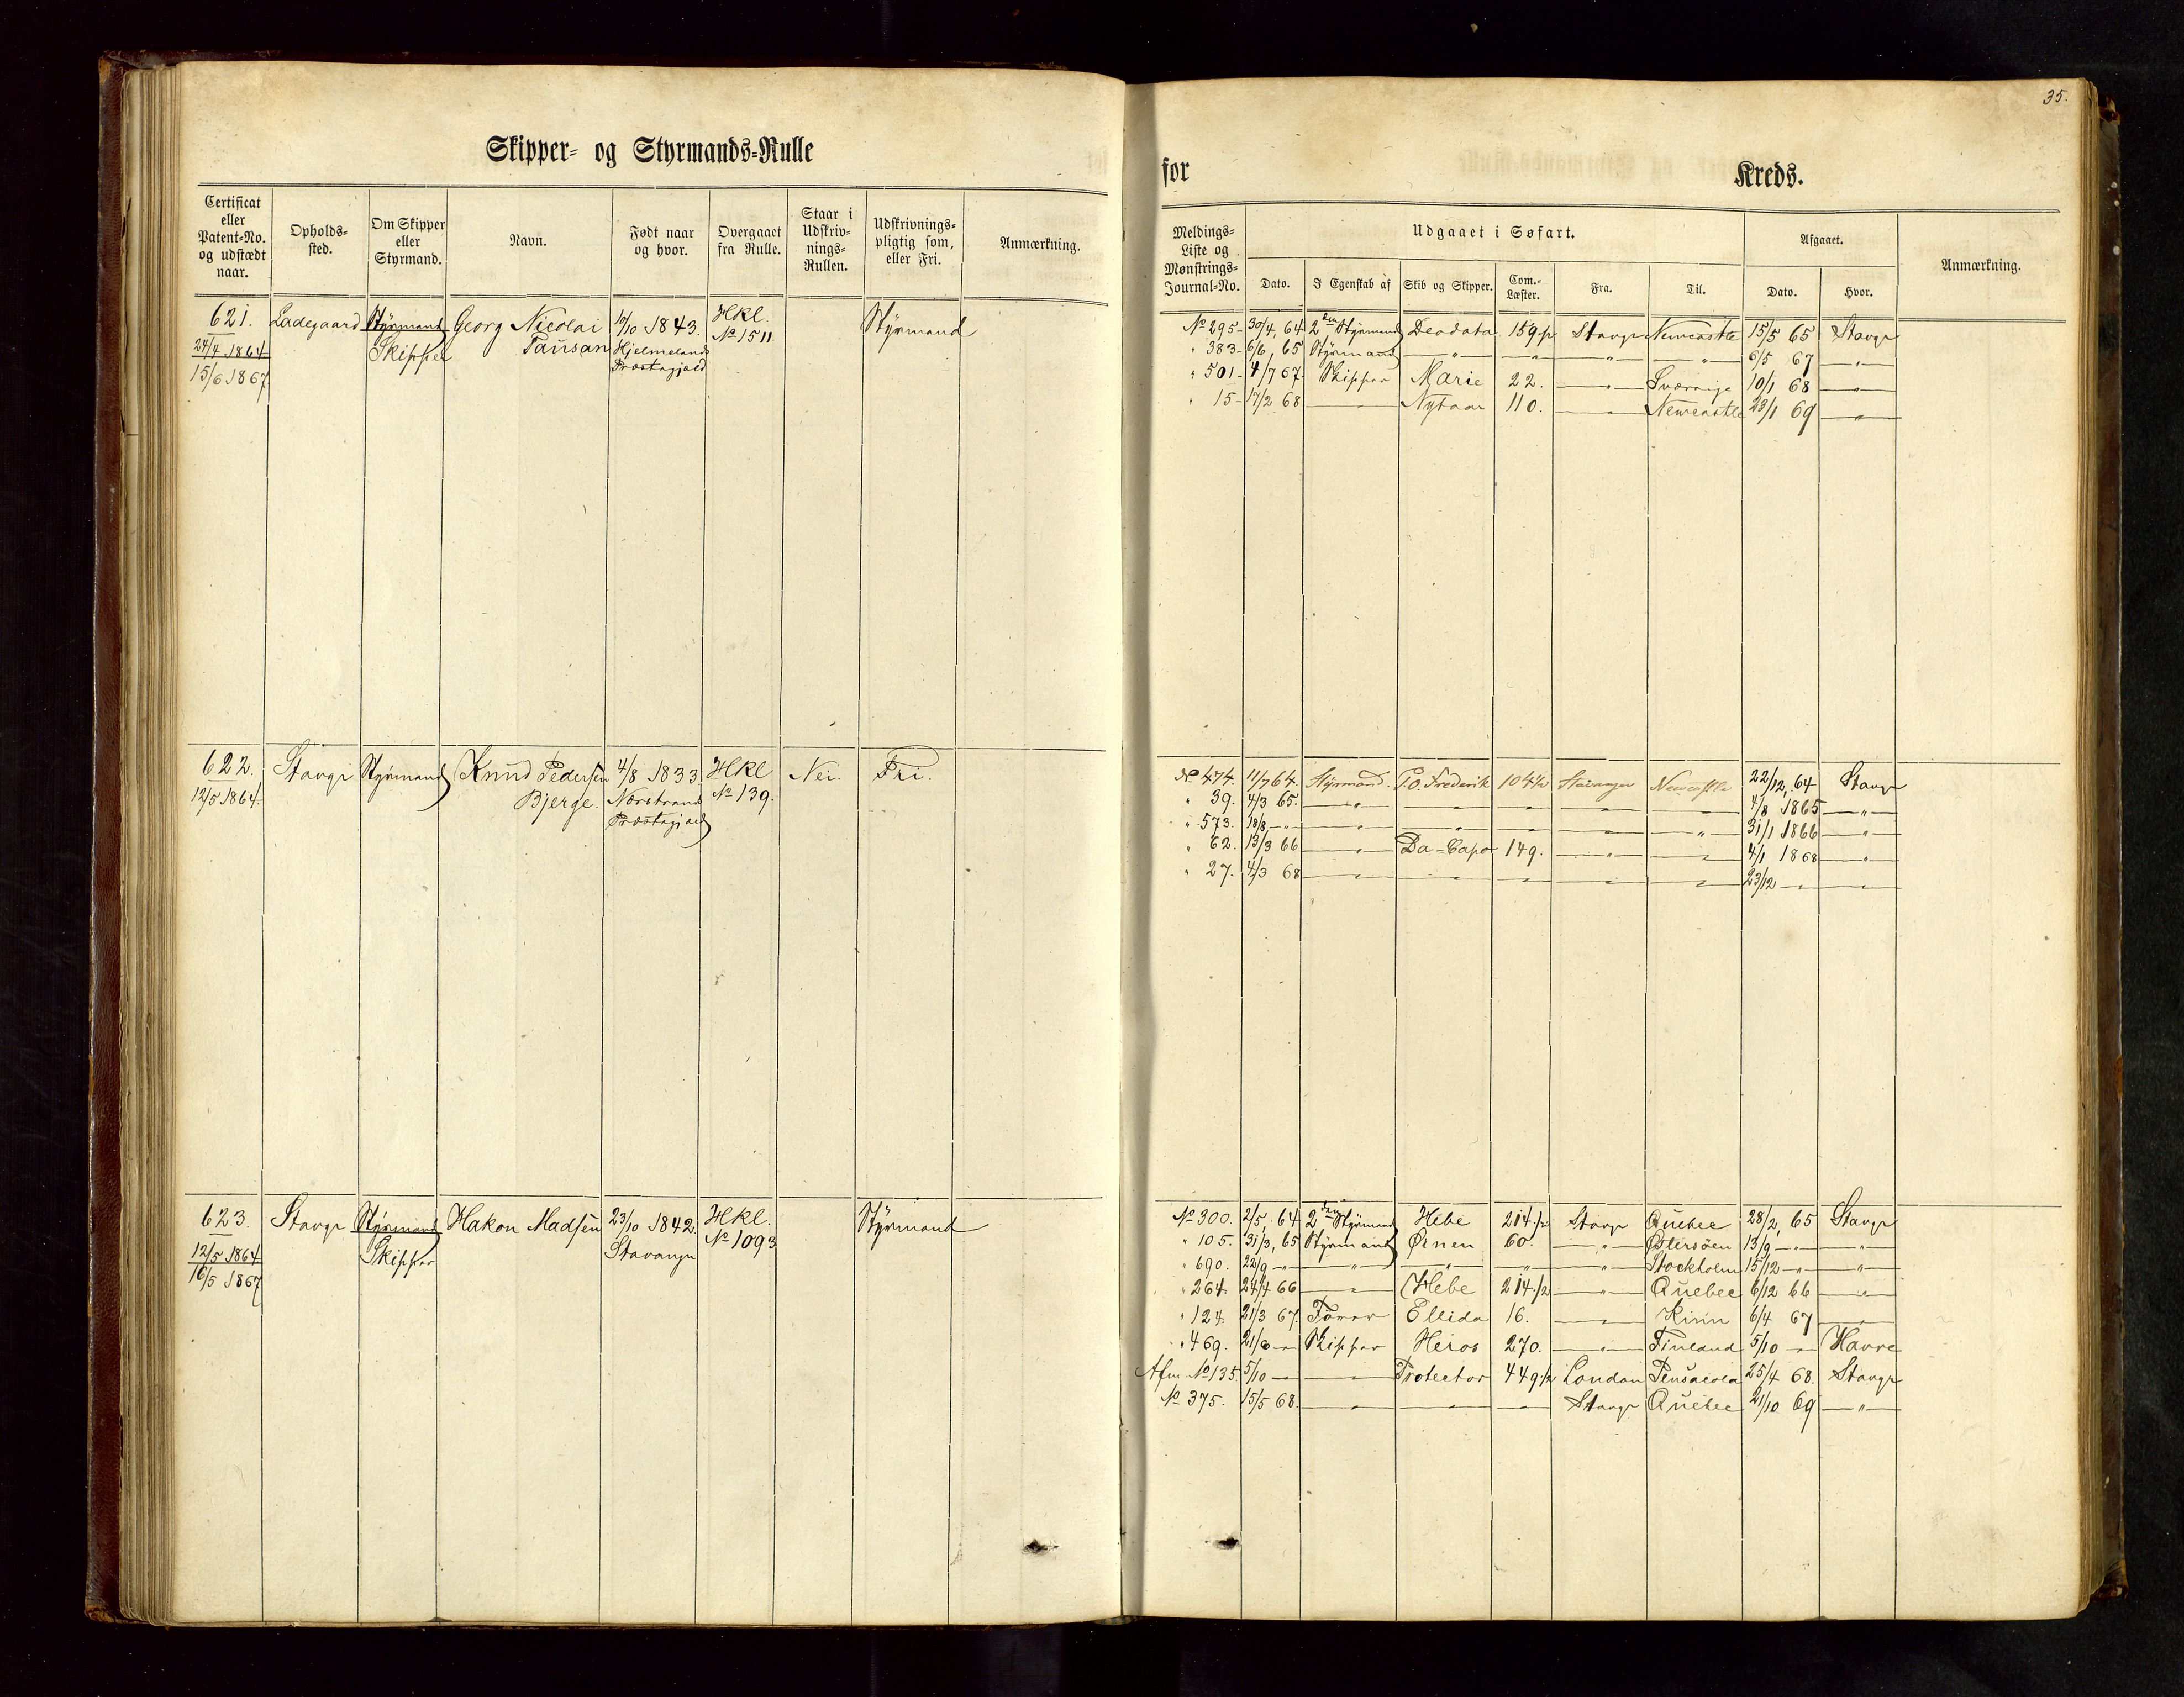 35.
Skipper- og Styrmands-Rulle
for Kreds.
Certificat eller Patent-No. og udstædt naar.
Opholds-sted.
Om Skipper eller Styrmand.
Navn.
Født naar og hvor.
Overgaaet fra Rulle.
Staar i Udskriv-nings-Rullen.
Udskrivnings-pligtig som, eller Fri.
Anmærkning.
Meldings-Liste og Mønstrings-Journal-No.
Udgaaet i Søfart.
Dato.
I Egenskab af
Skib og Skipper.
Com.-Læster.
Fra.
Til.
Afgaaet.
Dato.
Hvor.
Anmærkning.
621. Ladegaard Styrmand Georg Nicolai 10/10 1843. Hkl. Styrmand
24/4 1864 Skipper Pausan Hjelmelands No 1511
15/6 1867 Præstegjæld
No 295 30/4, 64 2den Styrmand Deodata 159 1/2 Stavgr Newcastle 15/5 65 Stavgr
" 383 6/6, 65 Styrmand — " — — " — — " — — " — 6/5 67 — " —
" 501 4/7 67. Skipper Marie 22. — " — Sverrige 10/1 68 — " —
" 15 17/2 68 — " — Nytaar 110. — " — Newcastle 23/1 69 — " —
622. Stavgr Styrmand Knud Pedersen 4/8 1833 Hkl Nei. Fri.
12/5 1864 Bjerge. Nærstrand No 139.
Præstegjæld
No 474. 11/7 64. Styrmand. P.O. Frederik 104 1/2 Stavanger Newcastle 22/12, 64 Stavgr
" 39. 4/3 65. — " — — " — — " — — " — — " — 4/8 1865 — " —
" 573. 18/8 — " — — " — — " — — " — — " — — " — 31/1 1866 — " —
" 62. 13/3 66 — " — Da-Capo 149. — " — — " — 4/1 1868 — " —
" 27. 4/3 68 — " — — " — — " — — " — — " — 23/12 — " — — " —
623. Stavgr Styrmand Hakon Madsen 23/10 1842. Hkl. Styrmand
12/5 1864 Skipper Stavanger No 1093
16/5 1867
No 300. 2/5 64 2den Styrmand Hebe 214 1/2 Stavgr Quebec 28/2, 65 Stavgr
" 105. 31/3, 65 Styrmand Ørnen 60. — " — Østersøen 13/9 — " — — " —
" 690. 22/9 — " — — " — — " — — " — — " — Stockholm 15/12 — " — — " —
" 264. 24/4 66 — " — Hebe 214 1/2 — " — Quebec 6/12 66 — " —
" 124. 21/3 67. Fører Ellida 16. — " — Kinn 6/4 67 — " —
" 469. 21/6 — " — Skipper Heros 270. — " — Finland 5/10 — " — Havre
Afm. No 135. 5/10 — " — — " — Protector 449 1/2 London Pensacola 25/4 68. Stavgr
No 375. 15/5 68. — " — — " — — " — Stavgr Quebec 21/10 69 — " —